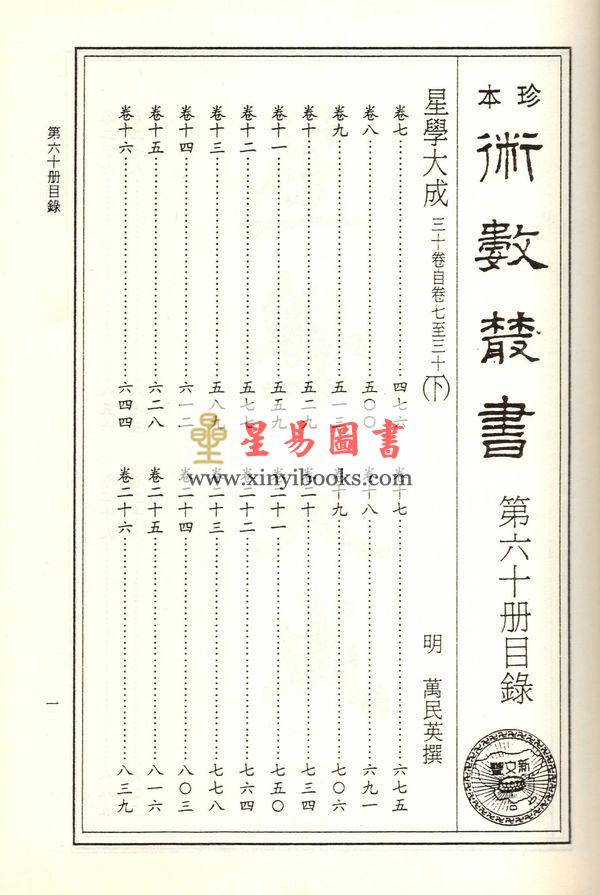 珍本
術數叢書
第六十册目錄
新文豐
星學大成 三十卷自卷七至三十(下)
明 萬民英撰
卷七……四七六
卷八……五〇〇
卷九……五一三
卷十……五二九
卷十一……五五九
卷十二……五七七
卷十三……五八九
卷十四……六一二
卷十五……六二八
卷十六……六四四
卷十七……六七五
卷十八……六九一
卷十九……七〇六
卷二十……七三四
卷二十一……七五〇
卷二十二……七六四
卷二十三……七七八
卷二十四……八〇三
卷二十五……八一六
卷二十六……八三九
第六十册目錄
一
星易圖書
www.xinyibooks.com